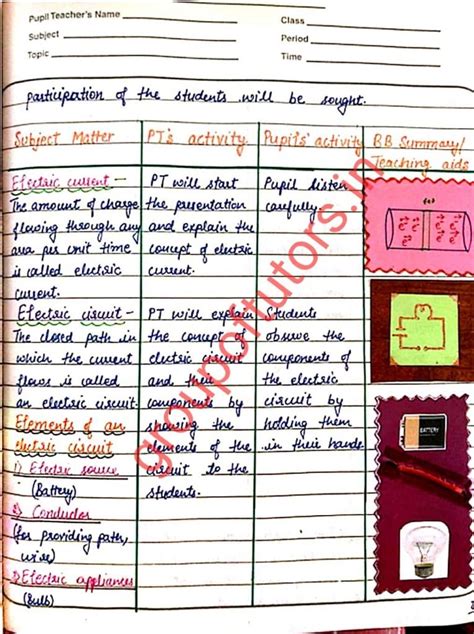 Pupil Teacher's Name
Class
Subject
Period
Topic
Time
participation of the students will be sought.
Subject Matter
PT's activity
Pupils' activity
BB Summary/
Teaching aids
Electric current -
The amount of charge
flowing through any
area per unit time
is called electric
current.
PT will start
the presentation
and explain the
concept of electric
current.
Pupil listen
carefully.
Electric circuit -
The closed path in
which the current
flows is called
an electric circuit.
Elements of an
electric circuit
1) Electric source
(Battery)
2) Conductor
(for providing path,
wire)
3) Electric appliances
(Bulb)
PT will explain
the concept of
electric circuit
and their
components by
showing the
elements of the
circuit to the
students.
Students
observe the
components of
the electric
circuit by
holding them
in their hands.
BATTERY
groupoftutors.in